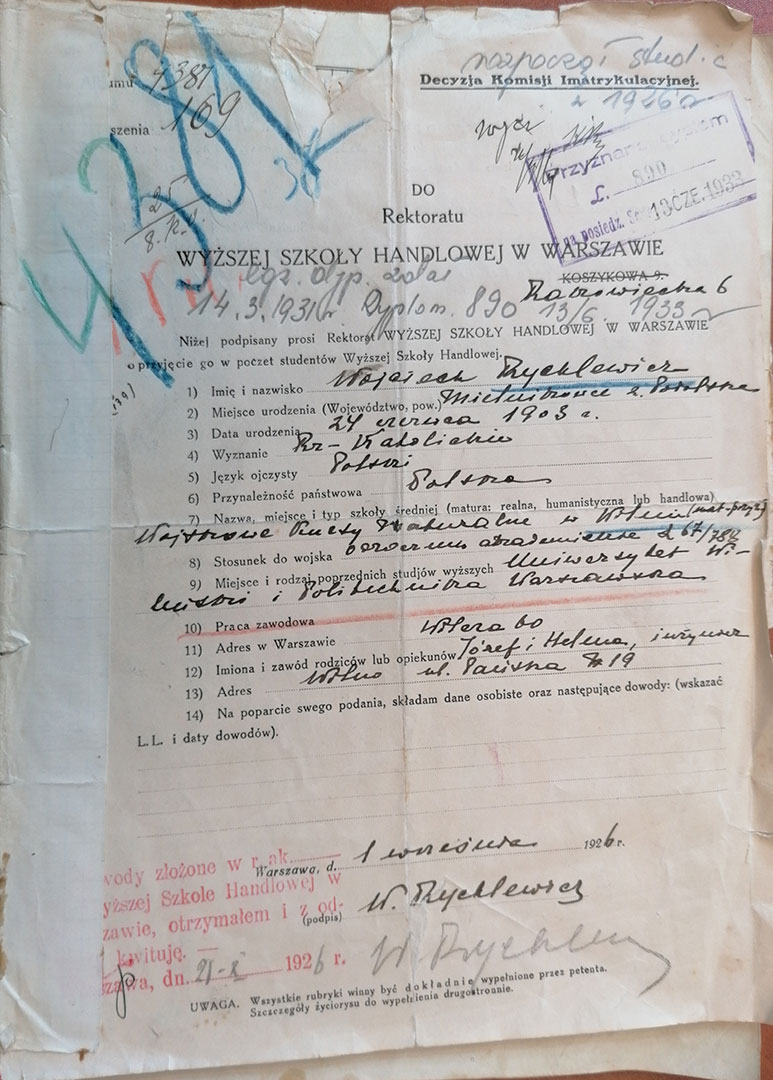 4381
umu 4381
szenia 169
25
8.
rozpoczął studia
Decyzja Komisji Imatrykulacyjnej.
z 1926 r
Przyznano dyplom
L. 890
na posiedz. 13 CZE. 1933
DO
Rektoratu
WYŻSZEJ SZKOŁY HANDLOWEJ W WARSZAWIE
KOSZYKOWA 9.
Rakowiecka 6
egz. dyp. zdał
14.3.1931 r Dyplom. 890 13/6. 1933 r
Niżej podpisany prosi Rektorat WYŻSZEJ SZKOŁY HANDLOWEJ W WARSZAWIE
o przyjęcie go w poczet studentów Wyższej Szkoły Handlowej.
1) Imię i nazwisko Wojciech Rychlewicz
2) Miejsce urodzenia (Województwo, pow.) Mielnikowce z. Podolska
3) Data urodzenia 24 czerwca 1903 r.
4) Wyznanie Rz-Katolickie
5) Język ojczysty Polski
6) Przynależność państwowa Polska
7) Nazwa, miejsce i typ szkoły średniej (matura: realna, humanistyczna lub handlowa)
Wojskowe Kursy Maturalne w Wilnie (mat-przyr)
8) Stosunek do wojska odroczenie akademickie
9) Miejsce i rodzaj poprzednich studjów wyższych Uniwersytet Wi-
leński i Politechnika Warszawska
10) Praca zawodowa
11) Adres w Warszawie Wilcza 60
12) Imiona i zawód rodziców lub opiekunów Józef i Helena, inżynier
13) Adres Wilno ul. Pańska # 19
14) Na poparcie swego podania, składam dane osobiste oraz następujące dowody: (wskazać
L.L. i daty dowodów).
Warszawa, d. 1 września 1926 r.
(podpis) W. Rychlewicz
wody złożone w r. ak.
yższej Szkole Handlowej w
zawie, otrzymałem i z od-
kwituję. —
zawa, dn. 21-X 1926 r.
W Rychlewicz
UWAGA. Wszystkie rubryki winny być dokładnie wypełnione przez petenta.
Szczegóły życiorysu do wypełnienia drugostronnie.